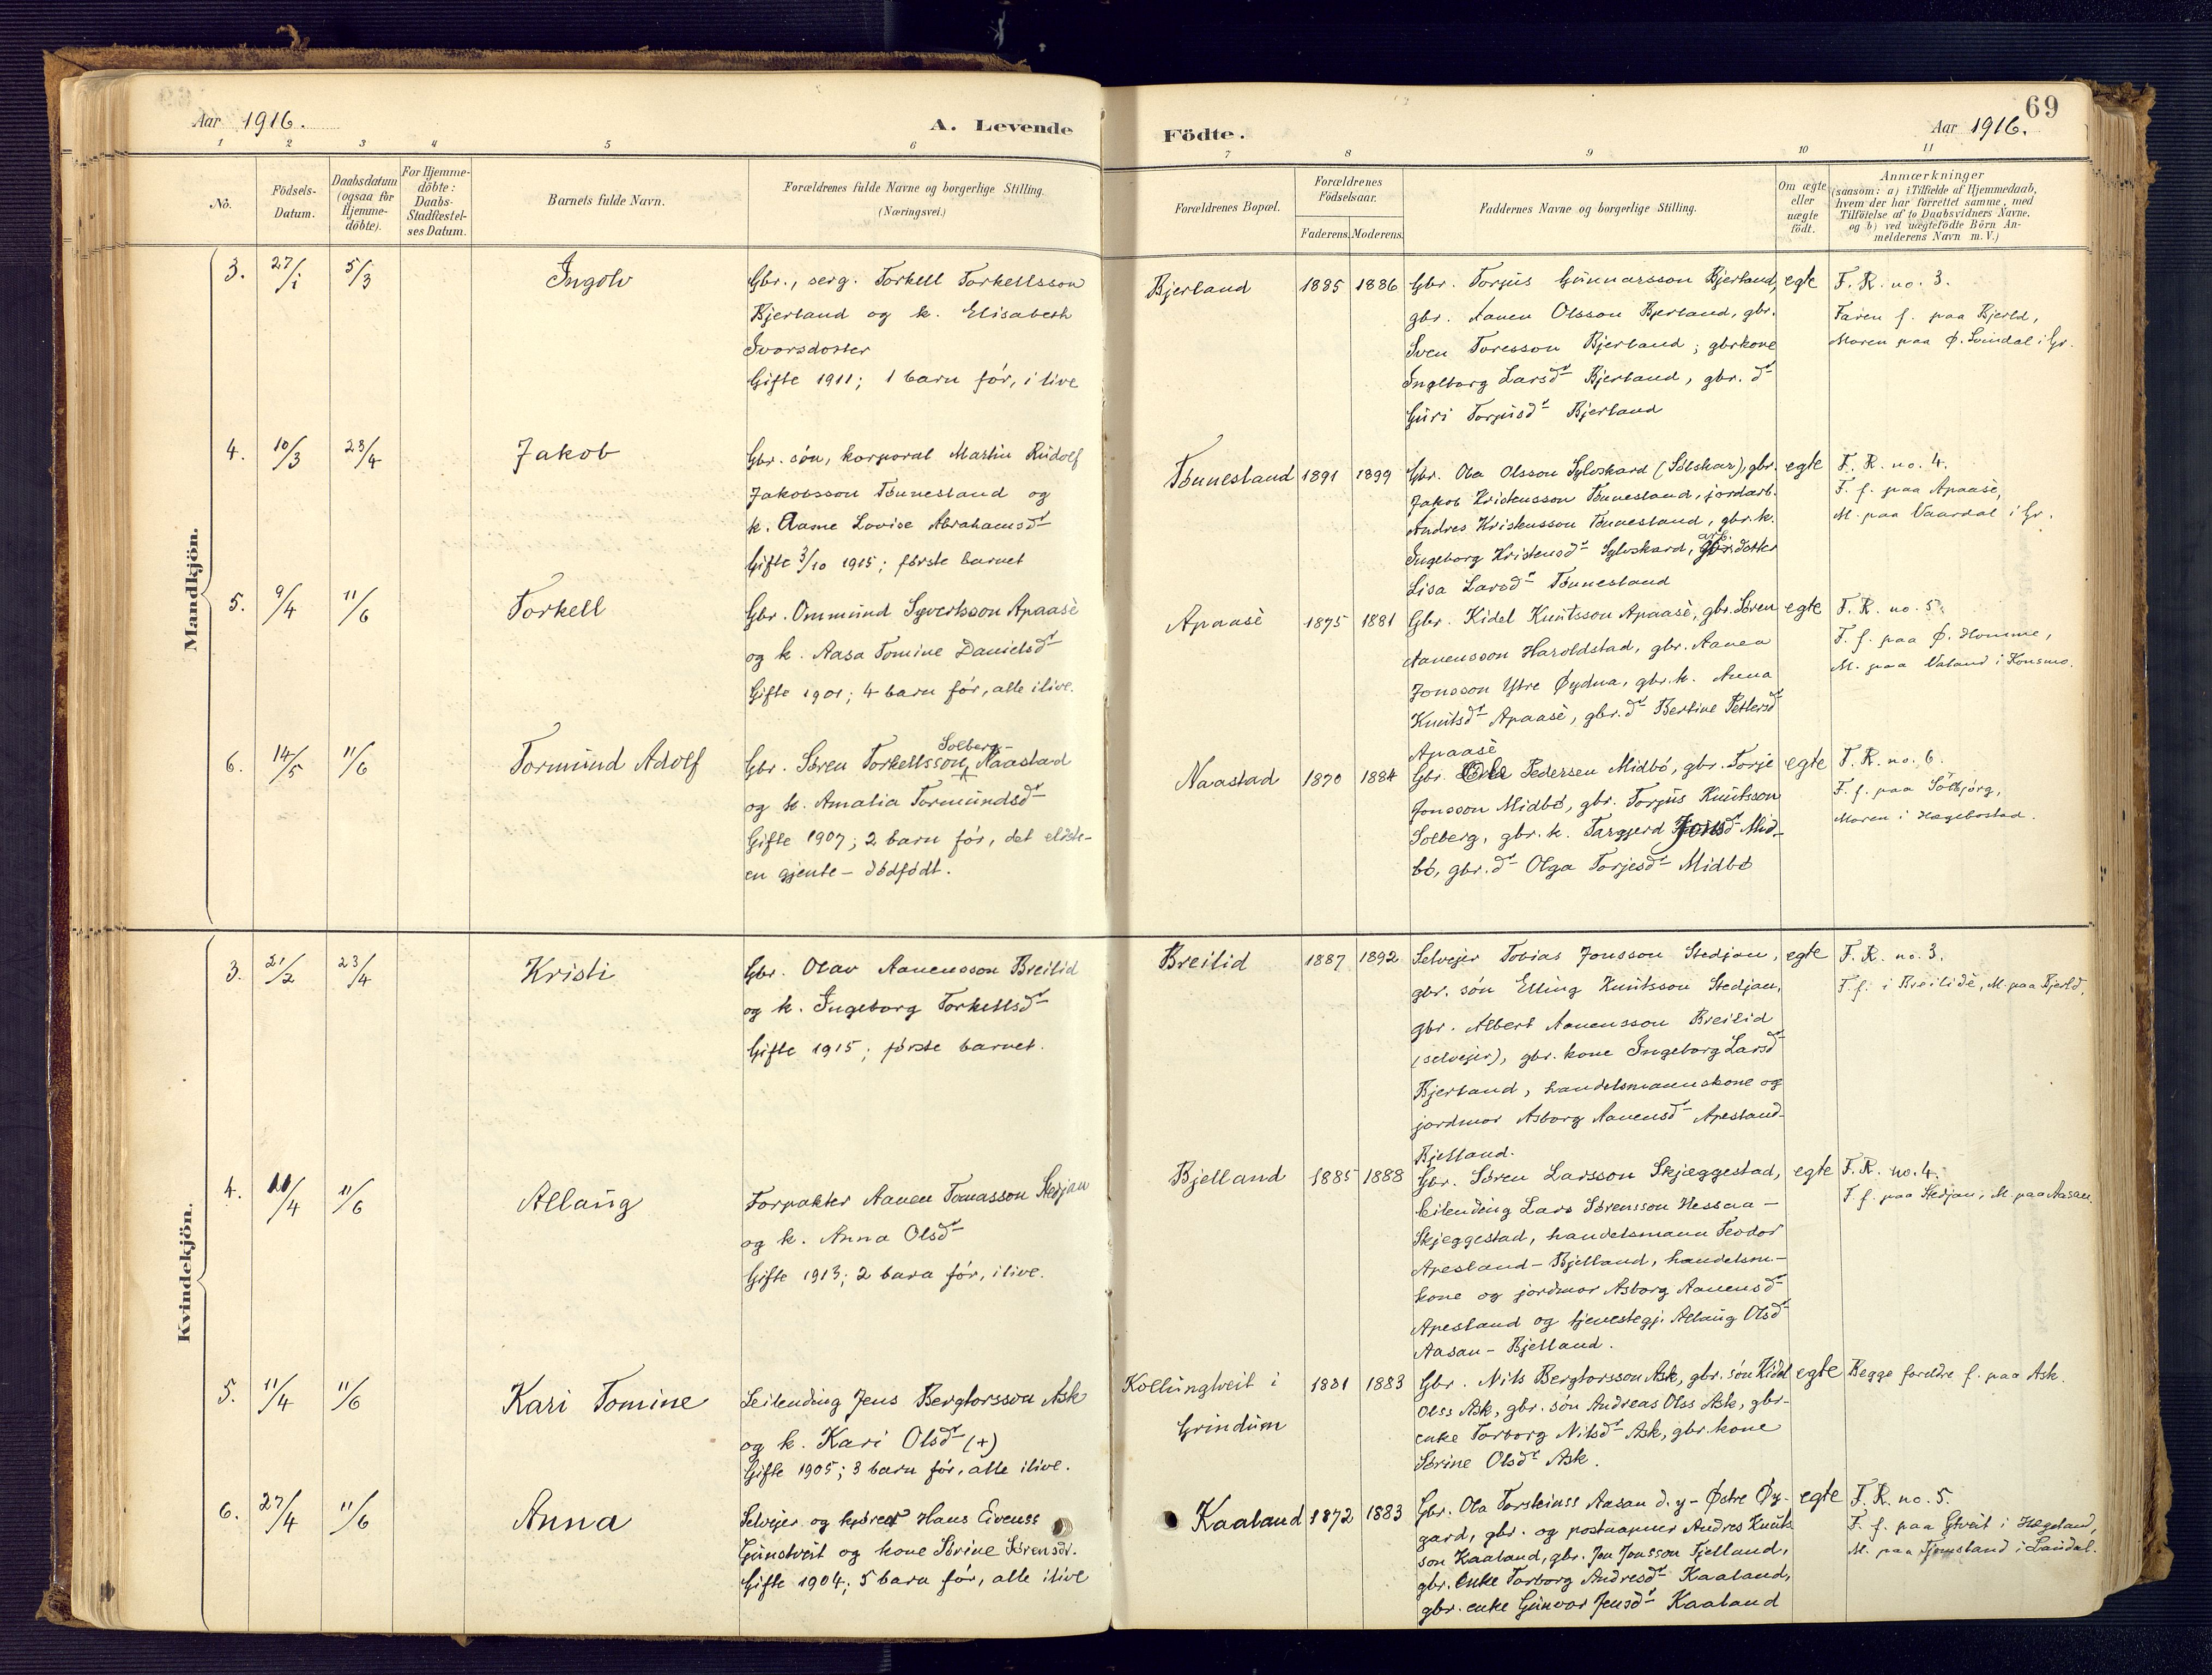 69
Aar 1916.
A. Levende
Födte.
Aar 1916.
1 2 3 4 5 6
7 8 9 10 11
No.
Födsels-
Datum.
Daabsdatum
(ogsaa for
Hjemme-
döbte).
For Hjemme-
döbte:
Daabs-
Stadfæstel-
ses Datum.
Barnets fulde Navn.
Forældrenes fulde Navne og borgerlige Stilling.
(Næringsvei.)
Forældrenes Bopæl.
Forældrenes
Födselsaar.
Faderens. Moderens.
Faddernes Navne og borgerlige Stilling.
Om ægte
eller
uægte
födt.
Anmærkninger
(saasom: a) i Tilfælde af Hjemmedaab,
hvem der har forrettet samme, med
Tilföielse af to Daabsvidners Navne,
og b) ved uægtefödte Börn An-
melderens Navn m. V.)
Mandkjön.
3. 27/1 5/3 Ingolv
Gbr., serg. Torkell Torkellsson
Bjerland og k. Elisabeth
Ivarsdotter
Gifte 1911; 1 barn før, i live
Bjerland 1885 1886
Gbr. Torjus Gunnarsson Bjerland,
gbr. Aanen Olsson Bjerland, gbr.
Sven Toresson Bjerland; gbrkone
Ingeborg Larsdr Bjerland, gbr. dr
Guri Torjusdr Bjerland
egte
F. R. no. 3.
Faren f. paa Bjerld,
Moren paa Ø. Svindal i Gr.
4. 10/3 23/4 Jakob
Gbr. søn, korporal Martin Rudolf
Jakobsson Tønnesland og
k. Aasne Lovise Abrahamsdr
Gifte 3/10 1915; første barnet
Tønnesland 1891 1899
Gbr. Ola Olsson Sylvskard (Sølskar), gbr.
Jakob Kristensson Tønnesland, jordarb.
Andres Kristensson Tønnesland, gbr. k.
Ingeborg Kristensdr Sylvskard, arb. dotter
Lisa Larsdr Tønnesland
egte
F. R. no. 4.
F. f. paa Apaasè,
M. paa Vaardal i Gr.
5. 9/4 11/6 Torkell
Gbr. Ommund Syvertsson Apaasè
og k. Aasa Tomine Danielsdr
Gifte 1901; 4 barn før, alle ilive.
Apaasè 1875 1881
Gbr. Kidel Knutsson Apaasè, gbr. Søren
Aanensson Haroldstad, gbr. Aanen
Jonsson Ytre Øydna, gbr. k. Anna
Knutsdr Apaasè, gbr. dr Bertine Pettersdr
Apaasè
egte
F. R. no. 5.
F. f. paa Ø. Homme,
M. paa Valand i Konsmo.
6. 14/5 11/6 Tormund Adolf
Solberg-
Gbr. Søren Torkellsson Naastad
og k. Amalia Tormundsdr
Gifte 1907; 2 barn før, det eldste-
en gjente - dødfødt.
Naastad 1870 1884
Gbr. Ole Pedersen Midbø, gbr. Torje
Jonsson Midbø, gbr. Torjus Knutsson
Solberg, gbr. k. Targjerd Jonsdr Mid-
bø, gbr. dr Olga Torjesdr Midbø
egte
F. R. no. 6.
F. f. paa Solbjørg,
Moren i Hægebostad.
Kvindekjön.
3. 21/2 23/4 Kristi
Gbr. Olav Aanensson Breilid
og k. Ingeborg Torkellsdr
Gifte 1915; første barnet.
Breilid 1887 1892
Selvejer Tobias Jonsson Stedjan,
gbr. søn Elling Knutsson Stedjan,
gbr. Albert Aanensson Breilid
(selvejer), gbr. kone Ingeborg Larsdr
Bjerland, handelsmannskone og
jordmor Asborg Aanensdr Apesland-
Bjelland.
egte
F. R. no. 3.
F. f. i Breilidè, M. paa Bjerld.
4. 10/4 11/6 Allaug
Forpakter Aanen Tomasson Stedjan
og k. Anna Olsdr
Gifte 1913; 2 barn før, ilive.
Bjelland 1885 1888
Gbr. Søren Larsson Skjæggestad,
leilending Lars Sørensson Hessaa -
Skjeggestad, handelsmann Teodor
Apesland - Bjelland, handelsm.-
kone og jordmor Asborg Aanensdr
Apesland og tjenestegj. Allaug Olsdr
Aasan - Bjelland.
egte
F. R. no. 4.
F. f. paa Stedjan, M. paa Aasan.
5. 11/4 11/6 Kari Tomine
Leilending Jens Bergtorsson Ask
og k. Kari Olsdr (+)
Gifte 1905; 3 barn før, alle ilive.
Kollungtveit i
Grindum
1881 1883
Gbr. Nils Bergtorsson Ask, gbr. søn Kidel
Olss Ask, gbr. søn Andreas Olss Ask, gbr-
enke Torborg Nilsdr Ask, gbr. kone
Sørine Olsdr Ask.
egte
Begge foreldre f. paa Ask.
6. 27/4 11/6 Anna
Selvejer og kjører Hans Eivenss
Gunstveit og kone Sørine Sørensdr.
Gifte 1904; 5 barn før, alle ilive
Kaaland 1872 1883
Gbr. Ola Torsteinss Aasan d. y - Østre Øy-
gard, gbr. og postaapner Andres Knuts
son Kaaland, gbr. Jon Jonsson Fjelland,
gbr. enke Torborg Andresdr Kaaland,
gbr. enke Gunvor Jensdr Kaaland
egte
F. R. no. 5.
F. f. paa Gtveit i Hægeland,
M. paa Fjomsland i Laudal.